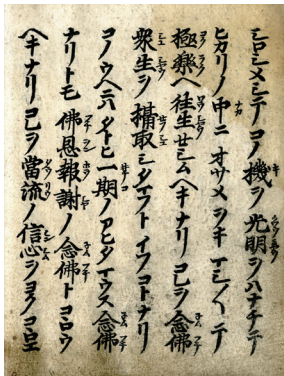 シロシメシテコノ機ヲ光明ヲハナチテ
ヒカリノ中ニオサメヲキマシ〱テ
極樂ヘ往生セシムヘキナリコレヲ念佛
衆生ヲ攝取シタマフトイフコトナリ
コノウヘニハタトヒ一期ノアヒタマウス念佛
ナリトモ佛恩報謝ノ念佛トコロウ
ヘキナリコレヲ當流ノ信心ヲヨクコロエ